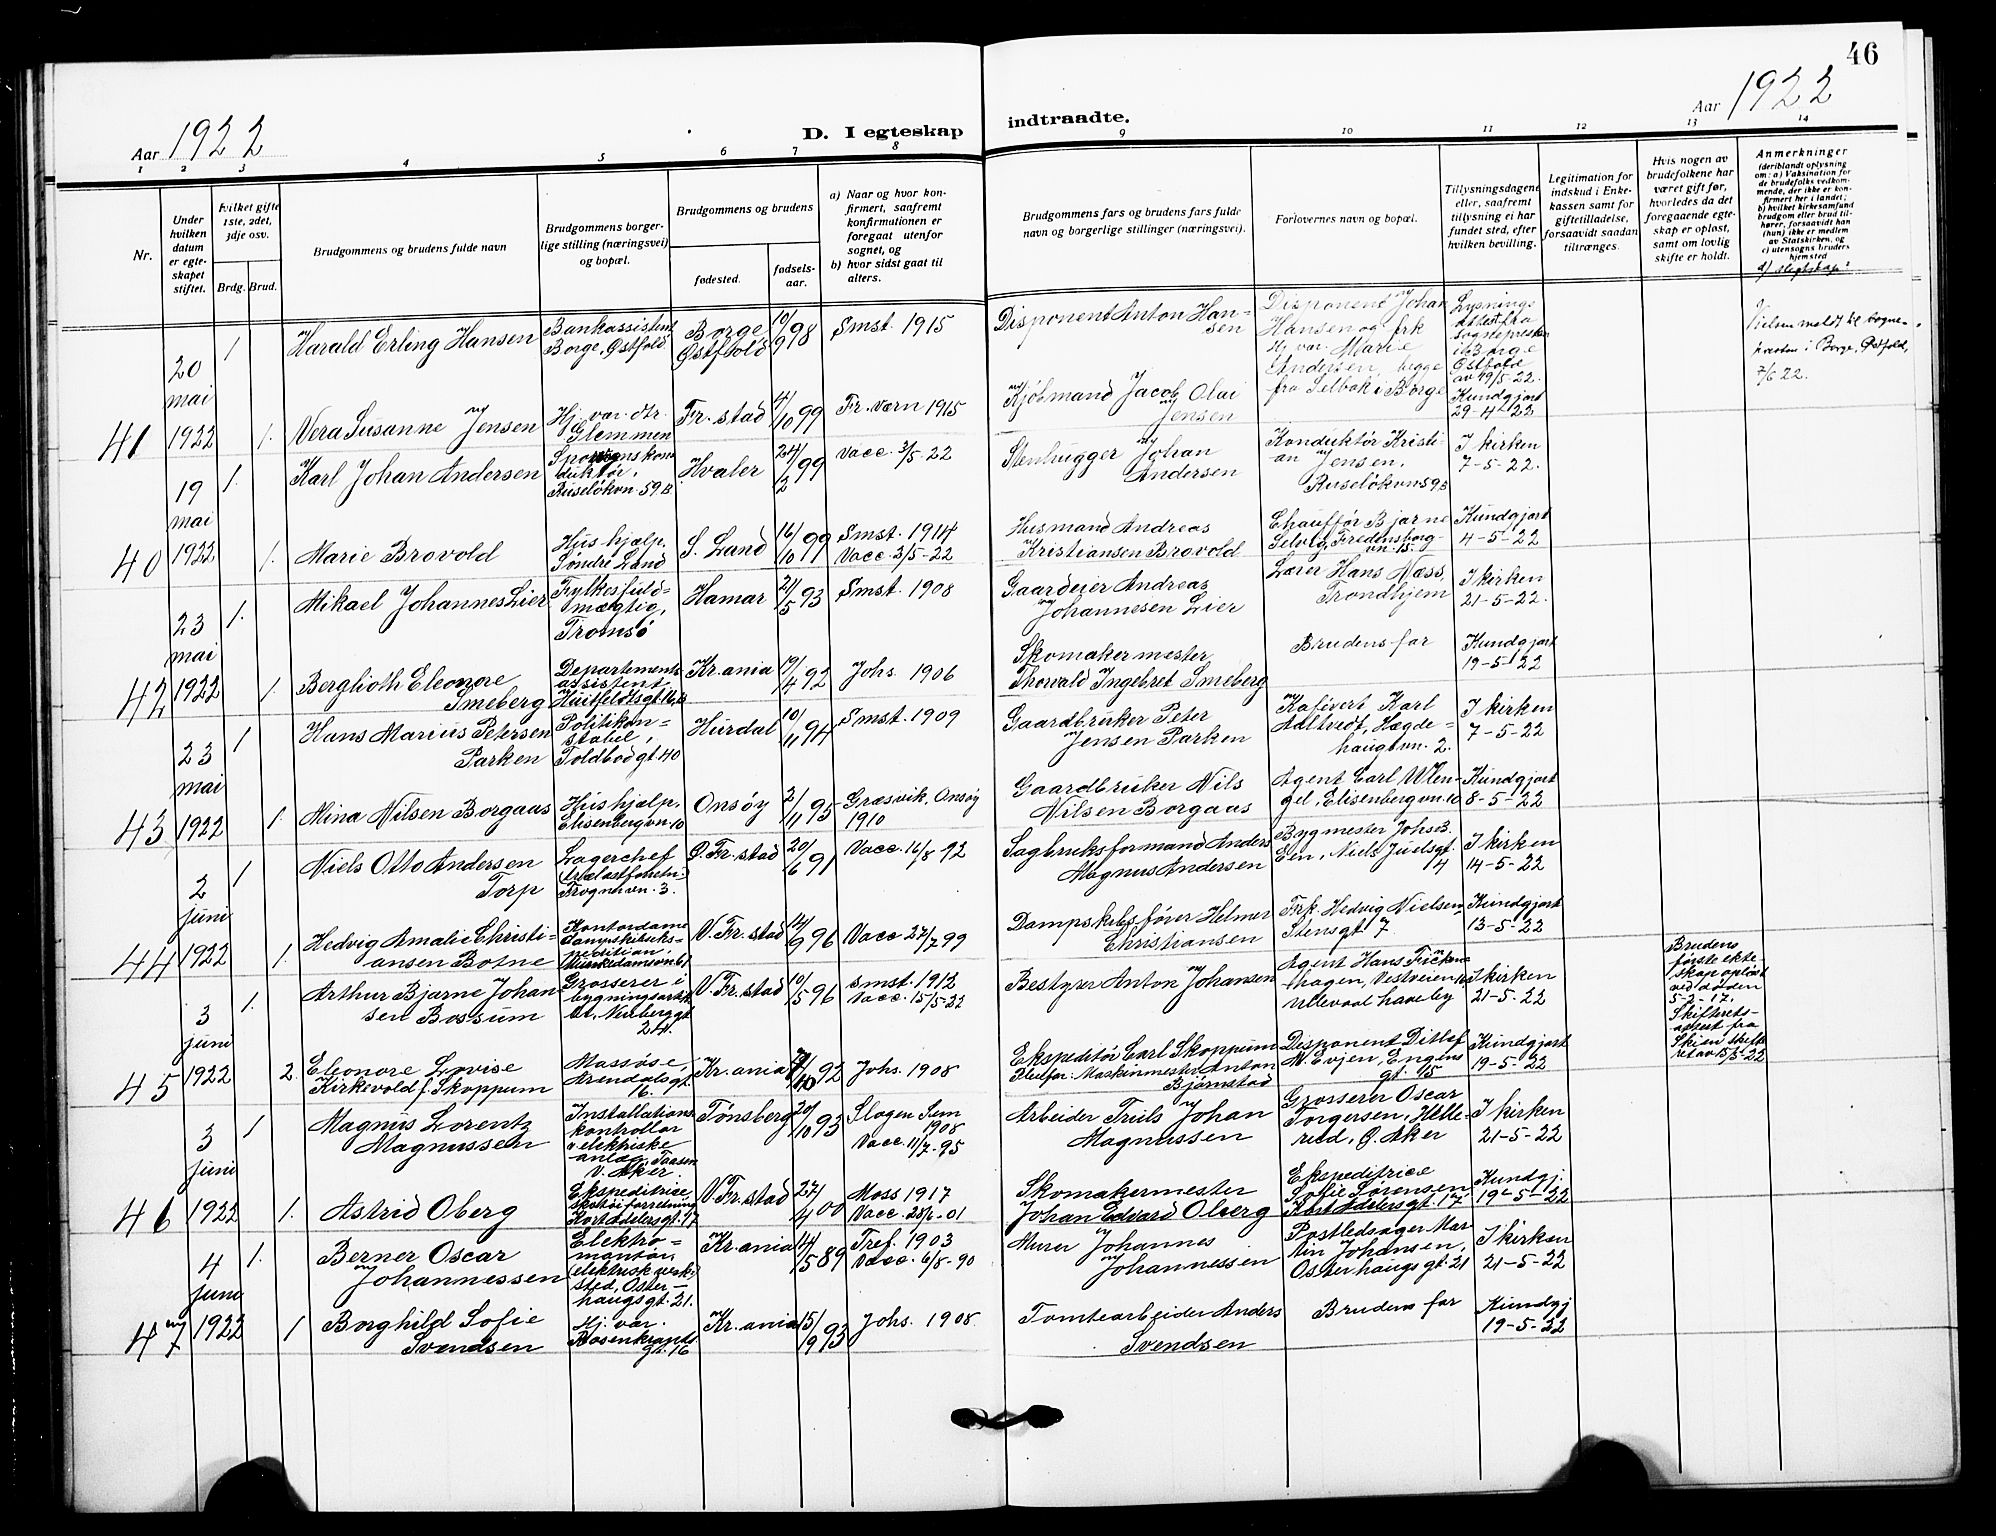 46
Aar 1922
D. I egteskap
indtraadte.
Aar 1922
1 2 3 4 5 6 7 8 9 10 11 12 13 14
Nr.
Under hvilken datum er egteskapet stiftet.
hvilket gifte 1ste, 2det, 3dje osv.
Brdg. Brud.
Brudgommens og brudens fulde navn
Brudgommens borgerlige stilling (næringsvei) og bopæl.
Brudgommens og brudens
fødested.
fødselsaar.
a) Naar og hvor konfirmert, saafremt konfirmationen er foregaat utenfor sognet, og
b) hvor sidst gaat til alters.
Brudgommens fars og brudens fars fulde navn og borgerlige stillinger (næringsvei).
Forlovernes navn og bopæl.
Tillysningsdagene eller, saafremt tillysning ei har fundet sted, efter hvilken bevilling.
Legitimation for indskud i Enkekassen samt for giftetilladelse, forsaavidt saadan tiltrænges.
Hvis nogen av brudefolkene har været gift før, hvorledes da det foregaaende egteskap er opløst, samt om lovlig skifte er holdt.
Anmerkninger
(deriblandt oplysning om: a) Vaksination for de brudefolks vedkommende, der ikke er konfirmert her i landet; b) hvilket kirkesamfund brudgom eller brud tilhører, forsaavidt han (hun) ikke er medlem av Statskirken, og c) utensogns bruders hjemsted
d) slegtskap?
41
20 mai 1922
1
Harald Erling Hansen
Bankassistent
Borge, Østfold
Borge Østfold
10/9 98
Smst. 1915
Disponent Anton Hansen
Disponent Johan
Hansen og frk
Hj. var. Marie
Andersen, begge
fra Selbak i Borge
Lysnings
attest fra
sognepresten
i Borge
Østfold
av 19/5-22.
Vielsen meldt til sogne-
presten i Borge, Østfold,
7/6 22.
1.
Vera Susanne Jensen
Hj. var. dtr.
Glemmen
Fr. stad
4/10 99
Fr. værn 1915
Kjøbmand Jacob Olai
Jensen
Kundgjort
29-4-22
40
19 mai 1922
1.
Karl Johan Andersen
Sporvognskon
duktør,
Ruseløkvn. 59 B.
Hvaler
24/2 99
Vacc. 3/5-22
Stenhugger Johan
Andersen
Konduktør Kristi-
an Jensen,
Ruseløkvn 59 B
I kirken
7-5-22.
1.
Marie Brovold
Hushjælp,
Søndre Land
S. Land
16/10 99
Smst. 1914
Vacc. 3/5-22
Husmand Andreas
Kristiansen Brovold
Chauffør Bjarne
Selvig, Fredensborg-
vn. 15.
Kundgjort
4-5-22
42
23 mai 1922
1.
Mikael Johannes Lier
Fylkesfuld=
mægtig,
Tromsø
Hamar
21/5 93
Smst. 1908
Gaardeier Andreas
Johannesen Lier
Lærer Hans Næss,
Trondhjem
I kirken
21-5-22.
1.
Berglioth Eleonore
Smeberg
Departements
assistent
Huitfeldtsgt 16, B
Kr. ania
19/4 92
Johs. 1906
Skomakermester
Thorvald Ingebret Smeberg
Brudens far
Kundgjort
19-5-22
43
23 mai 1922
1
Hans Marius Petersen
Parken
Politikon=
stabel,
Toldbodgt 40
Hurdal
10/11 94
Smst. 1909
Gaardbruker Peter
Jensen Parken
Kafévert Karl
Adltvedt, Hægde=
haugsvn. 2.
I kirken
7-5-22
1.
Mina Nilsen Borgaas
Hushjælp,
Elisenbergvn. 10
Onsøy
2/11 95
Græsvik, Onsøy
1910
Gaardbruker Nils
Nilsen Borgaas
Agent Carl Wlen-
gel, Elisenbergvn. 10
Kundgjort
8-5-22
44
2 juni 1922
1
Niels Otto Andersen
Torp
Lagerchef
Frognervn. 3.
Ø. Fr. stad
20/6 91
Vacc. 16/8-92
Sagbruksformand Anders
Magnus Andersen
Bygmester Johs B.
Een, Niels Juelsgt.
14
I kirken
14-5-22
1.
Hedvig Amalie Christi=
ansen Botne
Kontordame
dampskibseks-
pedition,
Munkedamsvn 61
V. Fr. stad
14/9 96
Vacc 27/7 99
Dampskibsfører Helmer
Christiansen
Frk. Hedvig Nielsen,
Stensgt 7.
Kundgjort
13-5-22
45
3 juni 1922
1.
Arthur Bjarne Johan
sen Bossum
Grosserer i
Niels Juelsgt
24.
V. Fr. stad
10/5 96
Smst. 1912
Vacc. 15/5-22
Bestyrer Anton Johansen
Agent Hans Ficken
hagen, Vestveien 10
Ullevaal haveby
I kirken
21-5-22
2.
Eleonore Lovise
Kirkevold f. Skoppum
Massøse,
Arendalsgt
16.
Kr. ania
10 92
Johs. 1908
Ekspeditør Carl Skoppum
Pleiefar: Maskinmester Anton
Bjørnstad
Disponent Ditlef
M. Evjen, Engens
gt. 15
Kundgjort
19-5-22
Brudens
første ekte-
skap opløst
ved døden
5-2-17.
Skifterets-
attest fra
Skien skifte
ret av 15/5-22
46
3 juni 1922
1
Magnus Lorentz
Magnussen
Installations
kontrollør
v. elektriske
anlæg, Taasen
V. Aker
Tønsberg
20/10 93
Slagen Sem
1908
Vacc. 11/7-95
Arbeider Truls Johan
Magnussen
Grosserer Oscar
Torgersen, Hille-
rud, Ø. Aker
I kirken
21-5-22
1.
Astrid Oberg
Ekspeditrice,
skotøiforretning
Kort Adelersgt. 17
V. Fr. stad
27/4 00
Moss 1917
Vacc. 28/6-01
Skomakermester
Johan Edvard Oberg
Ekspeditrice
Sofie Sørensen
Kort Adelersgt. 17
Kundgj.
19-5-22
47
4 juni 1922
1.
Berner Oscar
Johannessen
Elektro=
montør,
(elektrisk verk-
sted, Oster-
haugsgt. 21.
Kr. ania
14/5 89
Tref. 1903
Vacc. 6/8-90
Murer Johannes
Johannessen
Postledsager Mar
tin Johansen,
Osterhaugsgt. 21
I kirken
21-5-22
1
Borghild Sofie
Svendsen
Hj. var.
Rosenkrantz
gt. 16
Kr. ania
15/9 93
Johs. 1908
Tomtearbeider Anders
Svendsen
Brudens far
Kundgj
19-5-22